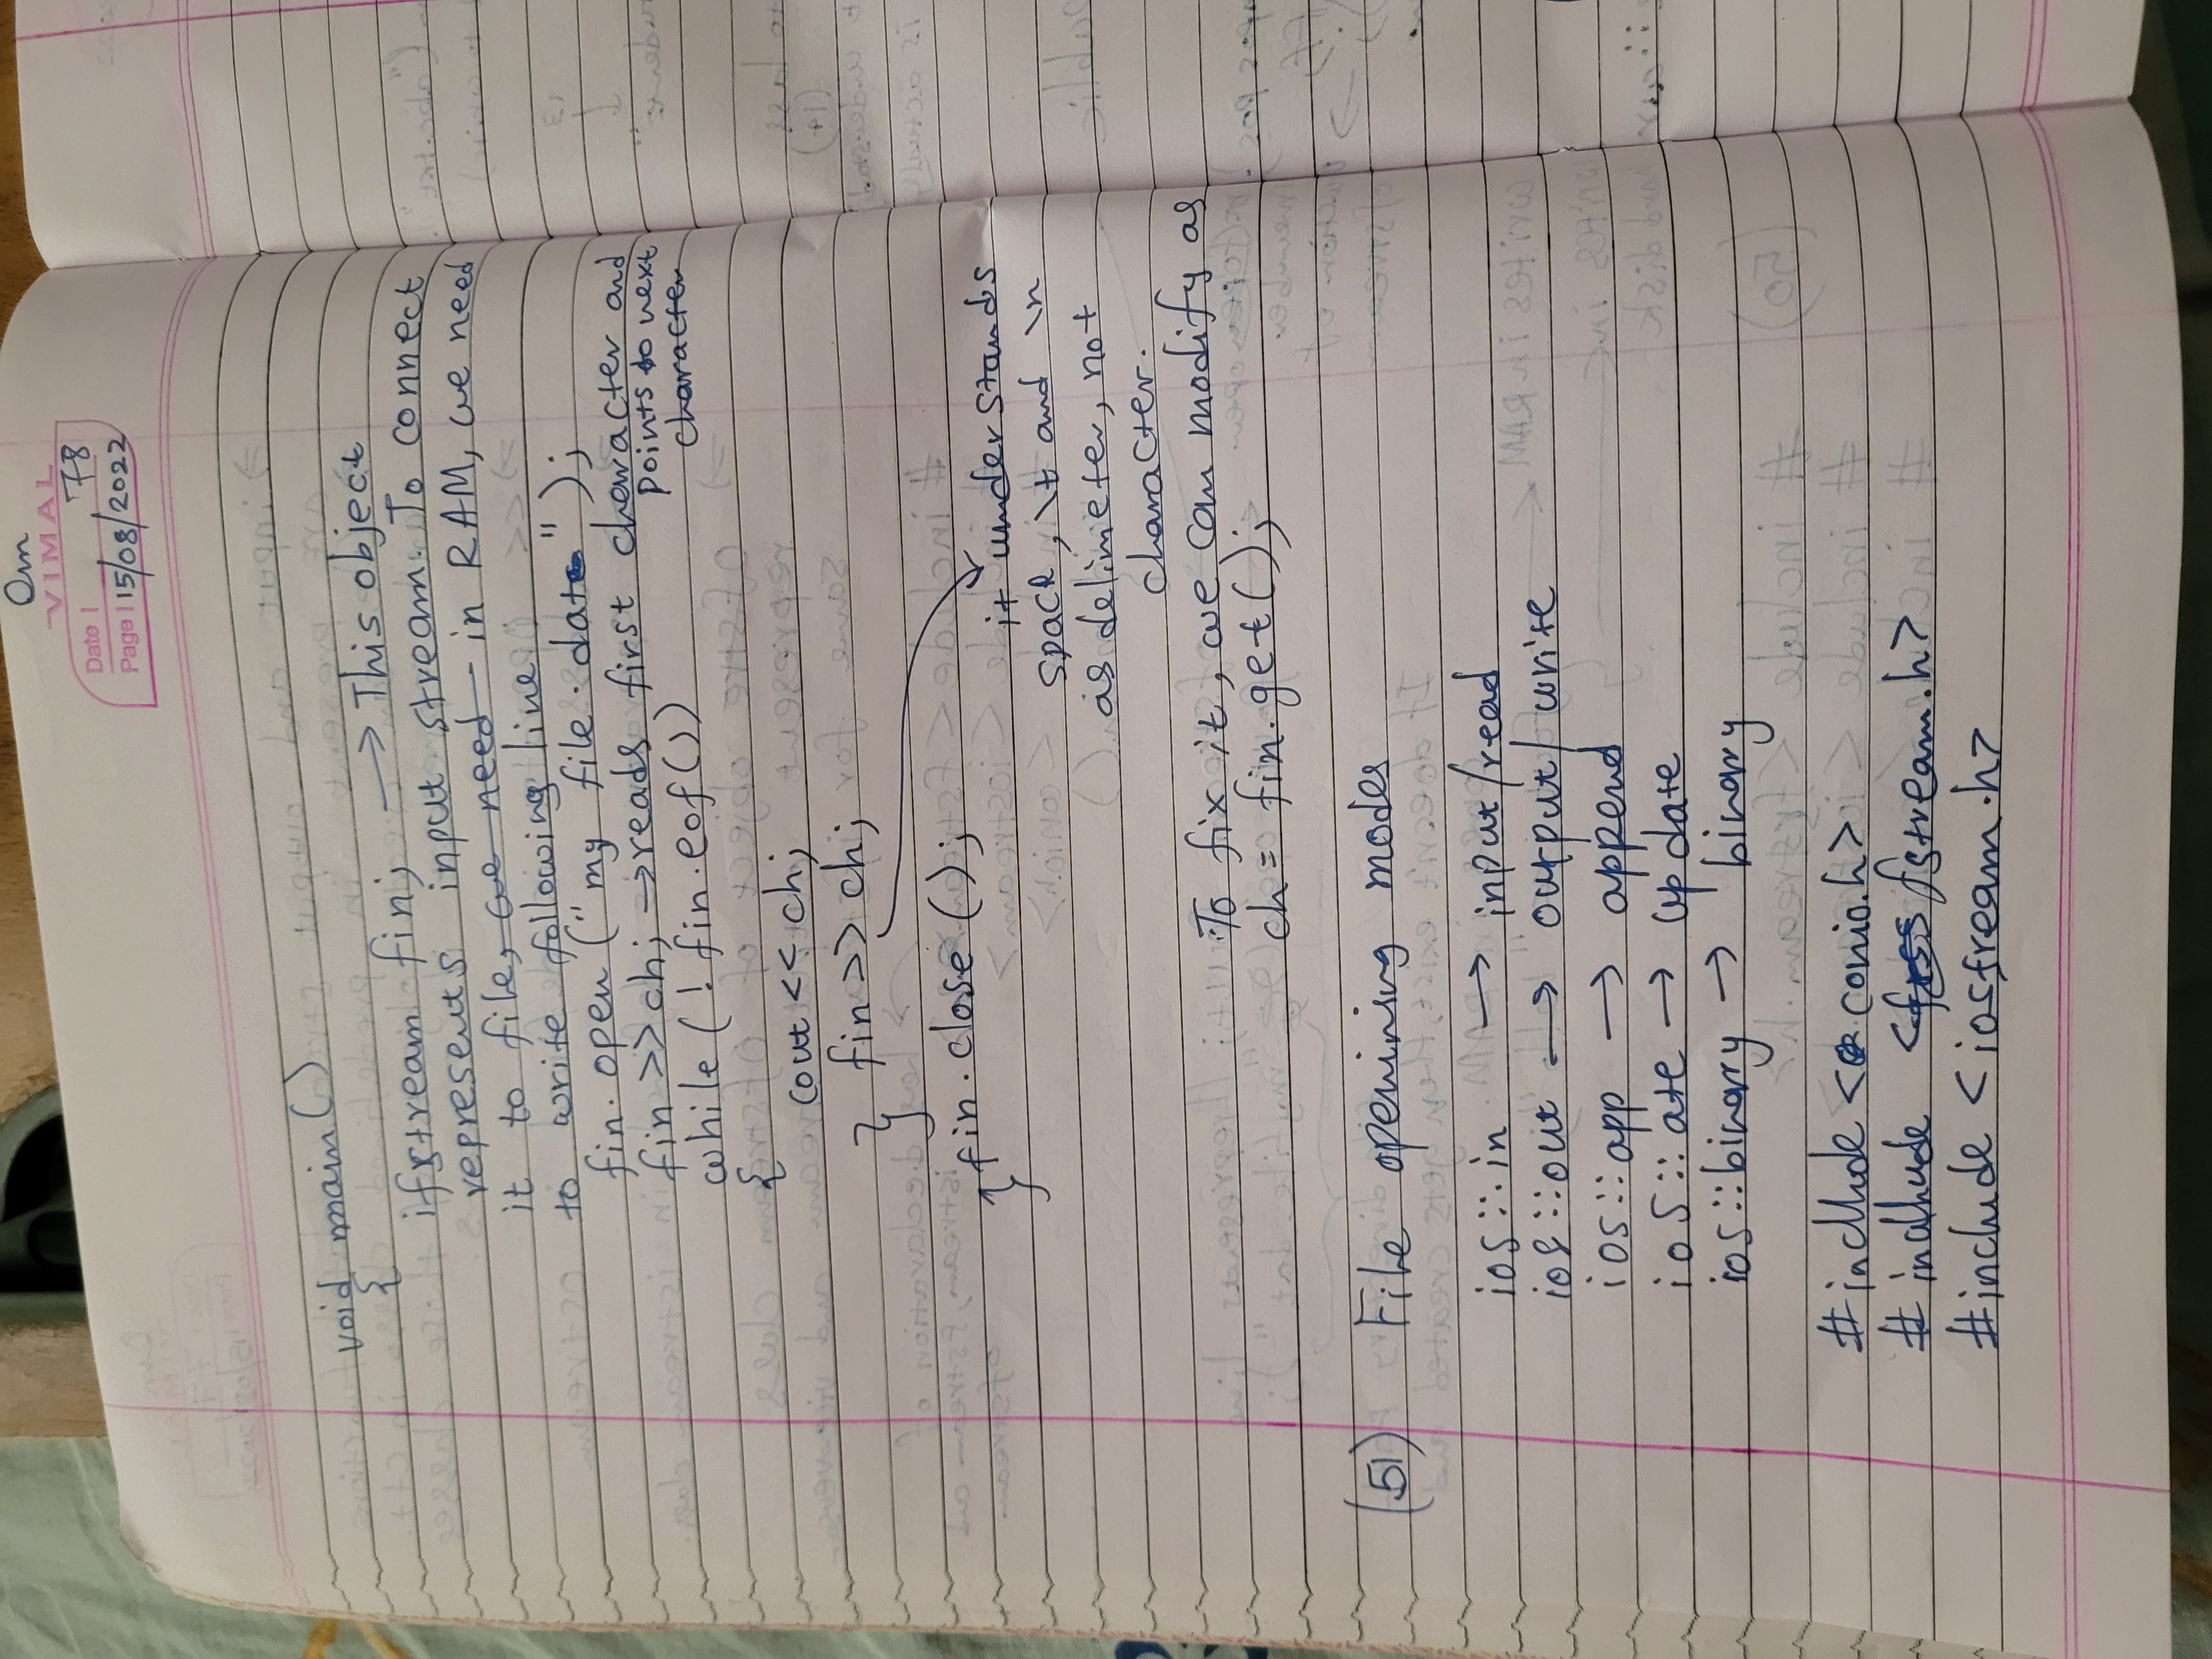 Om
VIMAL
Date | 78
Page | 15/08/2022
void main()
{
ifstream fin; → This object
represents input stream. To connect
it to file, we need in RAM, we need
to write following line.
fin.open ("my file.dat");
fin >> ch; → reads first character and
points to next
character
while (! fin.eof())
{
cout << ch;
fin >> ch;
}
fin.close ();
}
it understands
space, \t and \n
as delimeter, not
character.
To fix it, we can modify as
ch = fin.get();
(51) File openining modes
ios::in → input/read
ios::out → output/write
ios::app → append
ios::ate → update
ios::binary → binary
#include <conio.h>
#include <fstream.h>
#include <iostream.h>